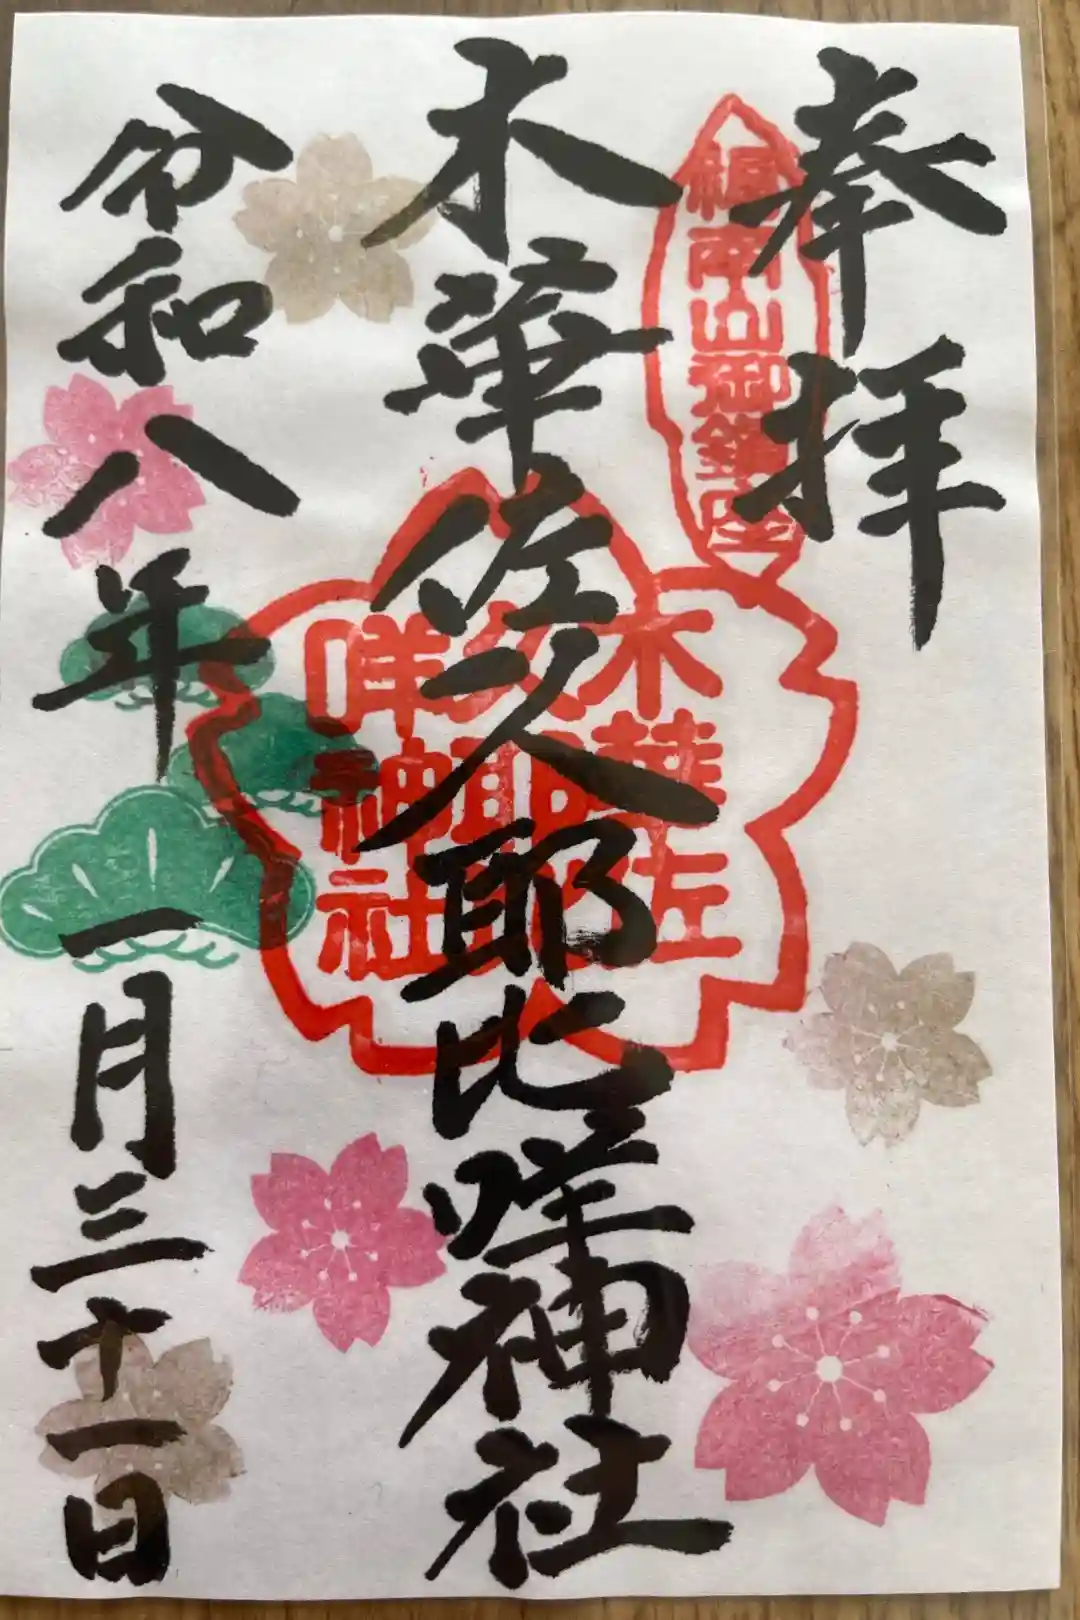 奉拝
木華佐久耶比咩神社
令和八年一月三十一日
木華佐
久耶比
咩神社